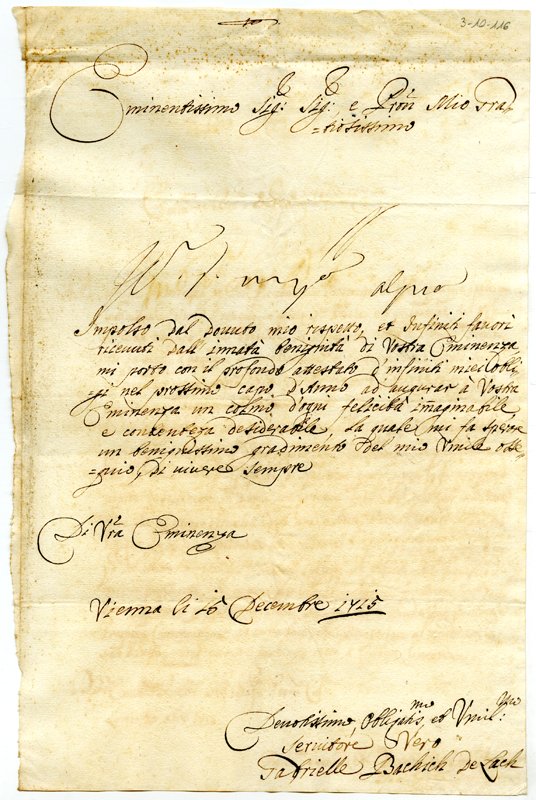 3-10-116
Eminentissimo Sig: Sig: e Pron Mio Gra
=tiosissimo
al pro
Impulso dal dovuto mio rispetto, et Infiniti favori
ricevuti dall innata benignità di Vostra Eminenza
mi porto con il profondo attestato d'infiniti miei obli=
gi nel prossimo capo d'Anno ad augurar à Vostra
Eminenza un colmo d'ogni felicità immaginabile,
e contenteza desiderabile. La quale mi fa sperare
un benignissimo gradimento del mio Umile osse=
=quio, di vivere sempre
Di Vra Eminenza
Vienna li 16 Decembre 1715
Devotissimo, Obligatsmo, et Umil:
Servitore Vero
Gabrielle Bachich De Lach